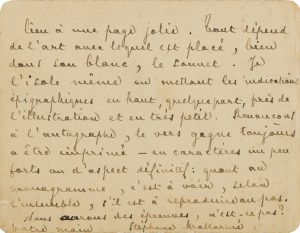 bien à une page jolie. Tout dépend
de l'art avec lequel est placé, bien
dans son blanc, le sonnet. Je
l'isole même en mettant les indications
épigraphiques en haut, quelque part, près de
l'illustration et en très petit. Renonçons
à l'autographe, le vers gagne toujours
à être imprimé — en caractères un peu
forts un d'aspect définitif: quant au
monogramme, c'est à voir, selon
l'ensemble, s'il est à reproduire ou pas.
Nous aurons des épreuves, n'est-ce pas?
votre main Stéphane Mallarmé